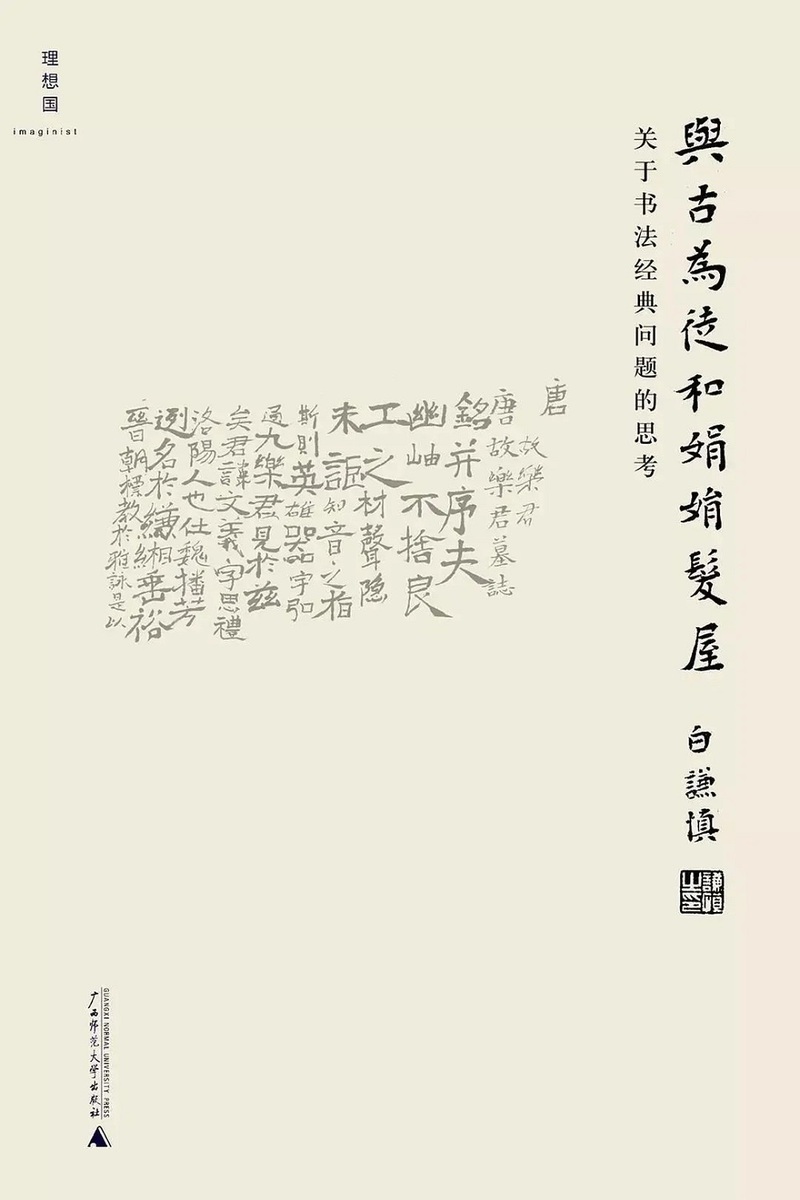 與古為徒和娟娟髮屋
关于书法经典问题的思考
白謙慎
謙慎之印
理想国
imaginist
唐
故樂君
唐故樂君墓誌
銘并序夫
幽岫不捨良
工之材聲隐
未謳知音之指
斯則英雄器宇弘
過九樂君見於兹
矣君諱文義字思禮
洛陽人也仕魏播芳
迾名於縑緗垂裕
晉朝標教於雅詠是以
广西师范大学出版社
GUANGXI NORMAL UNIVERSITY PRESS